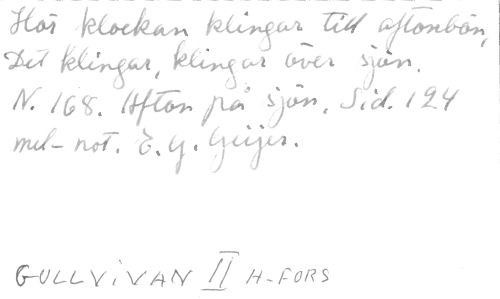 Hör klockan klingar till aftonbön,
Det klingar, klingar över sjön.
N. 168. Afton på sjön. Sid. 124
mel-not. E. G. Geijer.
GULLViVAN II H-FORS